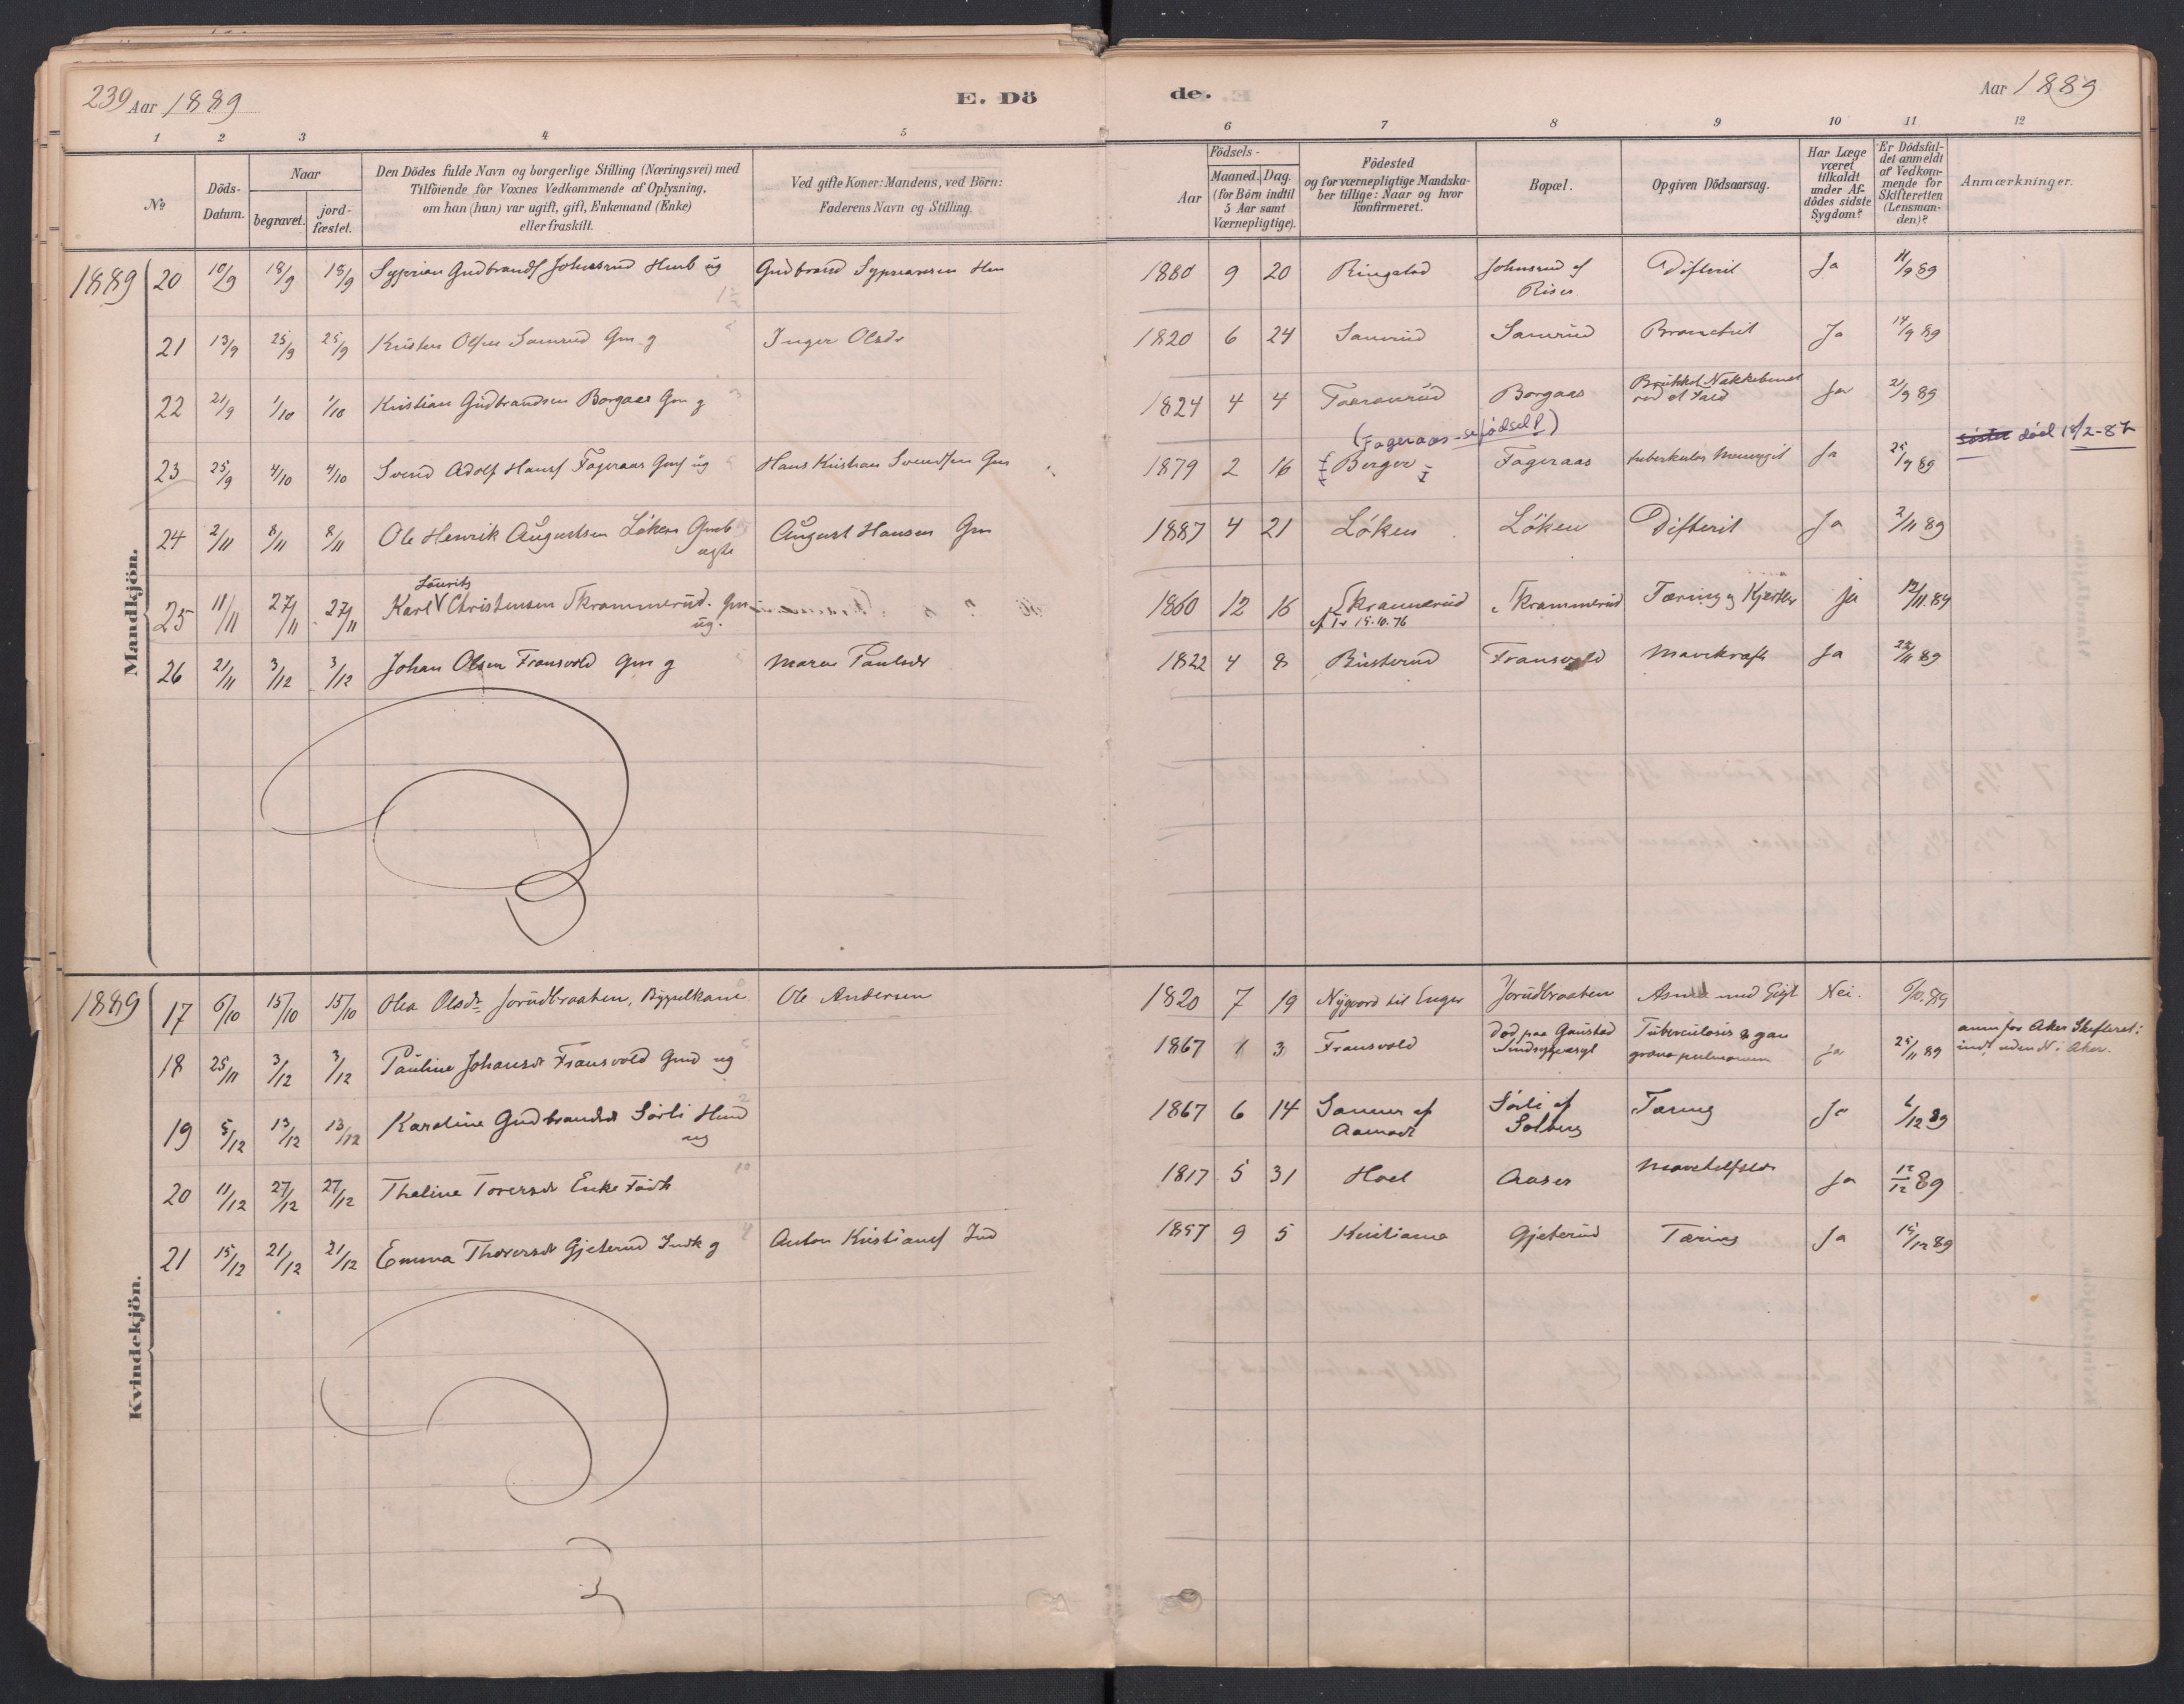 239 Aar 1889
E. Dö
de.
Aar 1889
1 2 3 4 5 6 7 8 9 10 11 12
No
Döds-
Datum.
Naar
begravet.
jord-
fæstet.
Den Dödes fulde Navn og borgerlige Stilling (Næringsvei) med
Tilföiende for Voxnes Vedkommende af Oplysning,
om han (hun) var ugift, gift, Enkemand (Enke)
eller fraskilt.
Ved gifte Koner: Mandens, ved Börn:
Faderens Navn og Stilling.
Födsels-
Aar
Maaned. Dag.
(for Börn indtil
5 Aar samt
Værnepligtige).
Födested
og for værnepligtige Mandska-
ber tillige: Naar og hvor
konfirmeret.
Bopæl.
Opgiven Dödsaarsag.
Har Læge
været
tilkaldt
under Af-
dödes sidste
Sygdom?
Er Dödsfal-
det anmeldt
af Vedkom-
mende for
Skifteretten
(Lensman-
den)?
Anmærkninger.
Mandkjön.
1889 20 10/9 18/9 18/9 Syprian Gudbrandsf Johnsrud Hmb ug Gudbrand Syprianson Hm 1880 9 20 Ringstad Johnsrud af Difterit Ja 11/9 89
Riser
21 13/9 25/9 25/9 Kristen Olsen Samrud Gm g Inger Olsdr 1820 6 24 Samrud Samrud Bronchit Ja 14/9 89
22 21/9 1/10 1/10 Kristian Gudbrandsen Borgaas Gm g 1824 4 4 Borgaas Brukket Nakkebenet Ja 21/9 89
ved et Fald
(Fageraas - se fødsel!)
sister død 18/2-87
23 25/9 4/10 4/10 Svend Adolf Hansf Fageraas Gmf ug Hans Kristian Svendsen Gm 1879 2 16 Berger Fageraas tuberkuløs Meningit Ja 25/9 89
24 2/11 8/11 8/11 Ole Henrik Augustsen Løken Gmb August Hansen Gm 1887 4 21 Løken Løken Difterit Ja 2/11 89
ægte
Lauritz
25 11/11 27/11 27/11 Karl V Christensen Skrammerud. Gm 1860 12 16 Skrammerud Skrammerud Tæring og Kjertler ja 12/11.89
ug. 15.10.76
26 21/11 3/12 3/12 Johan Olsen Fransvold Gm g Maren Paulsdr 1822 4 8 Busterud Fransvold Mavekræft Ja 22/11 89
Kvindekjön.
1889 17 6/10 15/10 15/10 Olea Olsdr. Jorudbraaten, Bygselkone Ole Andersen 1820 7 19 Nygaard til Enger Jorudbraaten Asma med Gigt Nei. 9/10.89
18 25/11 3/12 3/12 Pauline Johansdr Fransvold Gmd ug 1867 1 3 Fransvold Død paa Gaustad Tuberculosis & gan ja 25/11 89 anm for Aker Skifteret:
Sindsygeasyl græna pulmonum indt uden N i Aker.
19 5/12 13/12 13/12 Karoline Gudbrandsdr Sørli Hmd 1867 6 14 Sanner af Sørli af Tæring Ja 6/12 89
ug Aamodt Solberg
20 11/12 27/12 27/12 Theline Toversdr Enke Fådh 1817 5 31 Hoel Aaser Ja 12/12 89
21 15/12 21/12 21/12 Emma Thoversdr Gjeterud Indk g Anton Kristiansf Ind 1857 9 5 Kristiania Gjeterud Tæring Ja 15/12 89